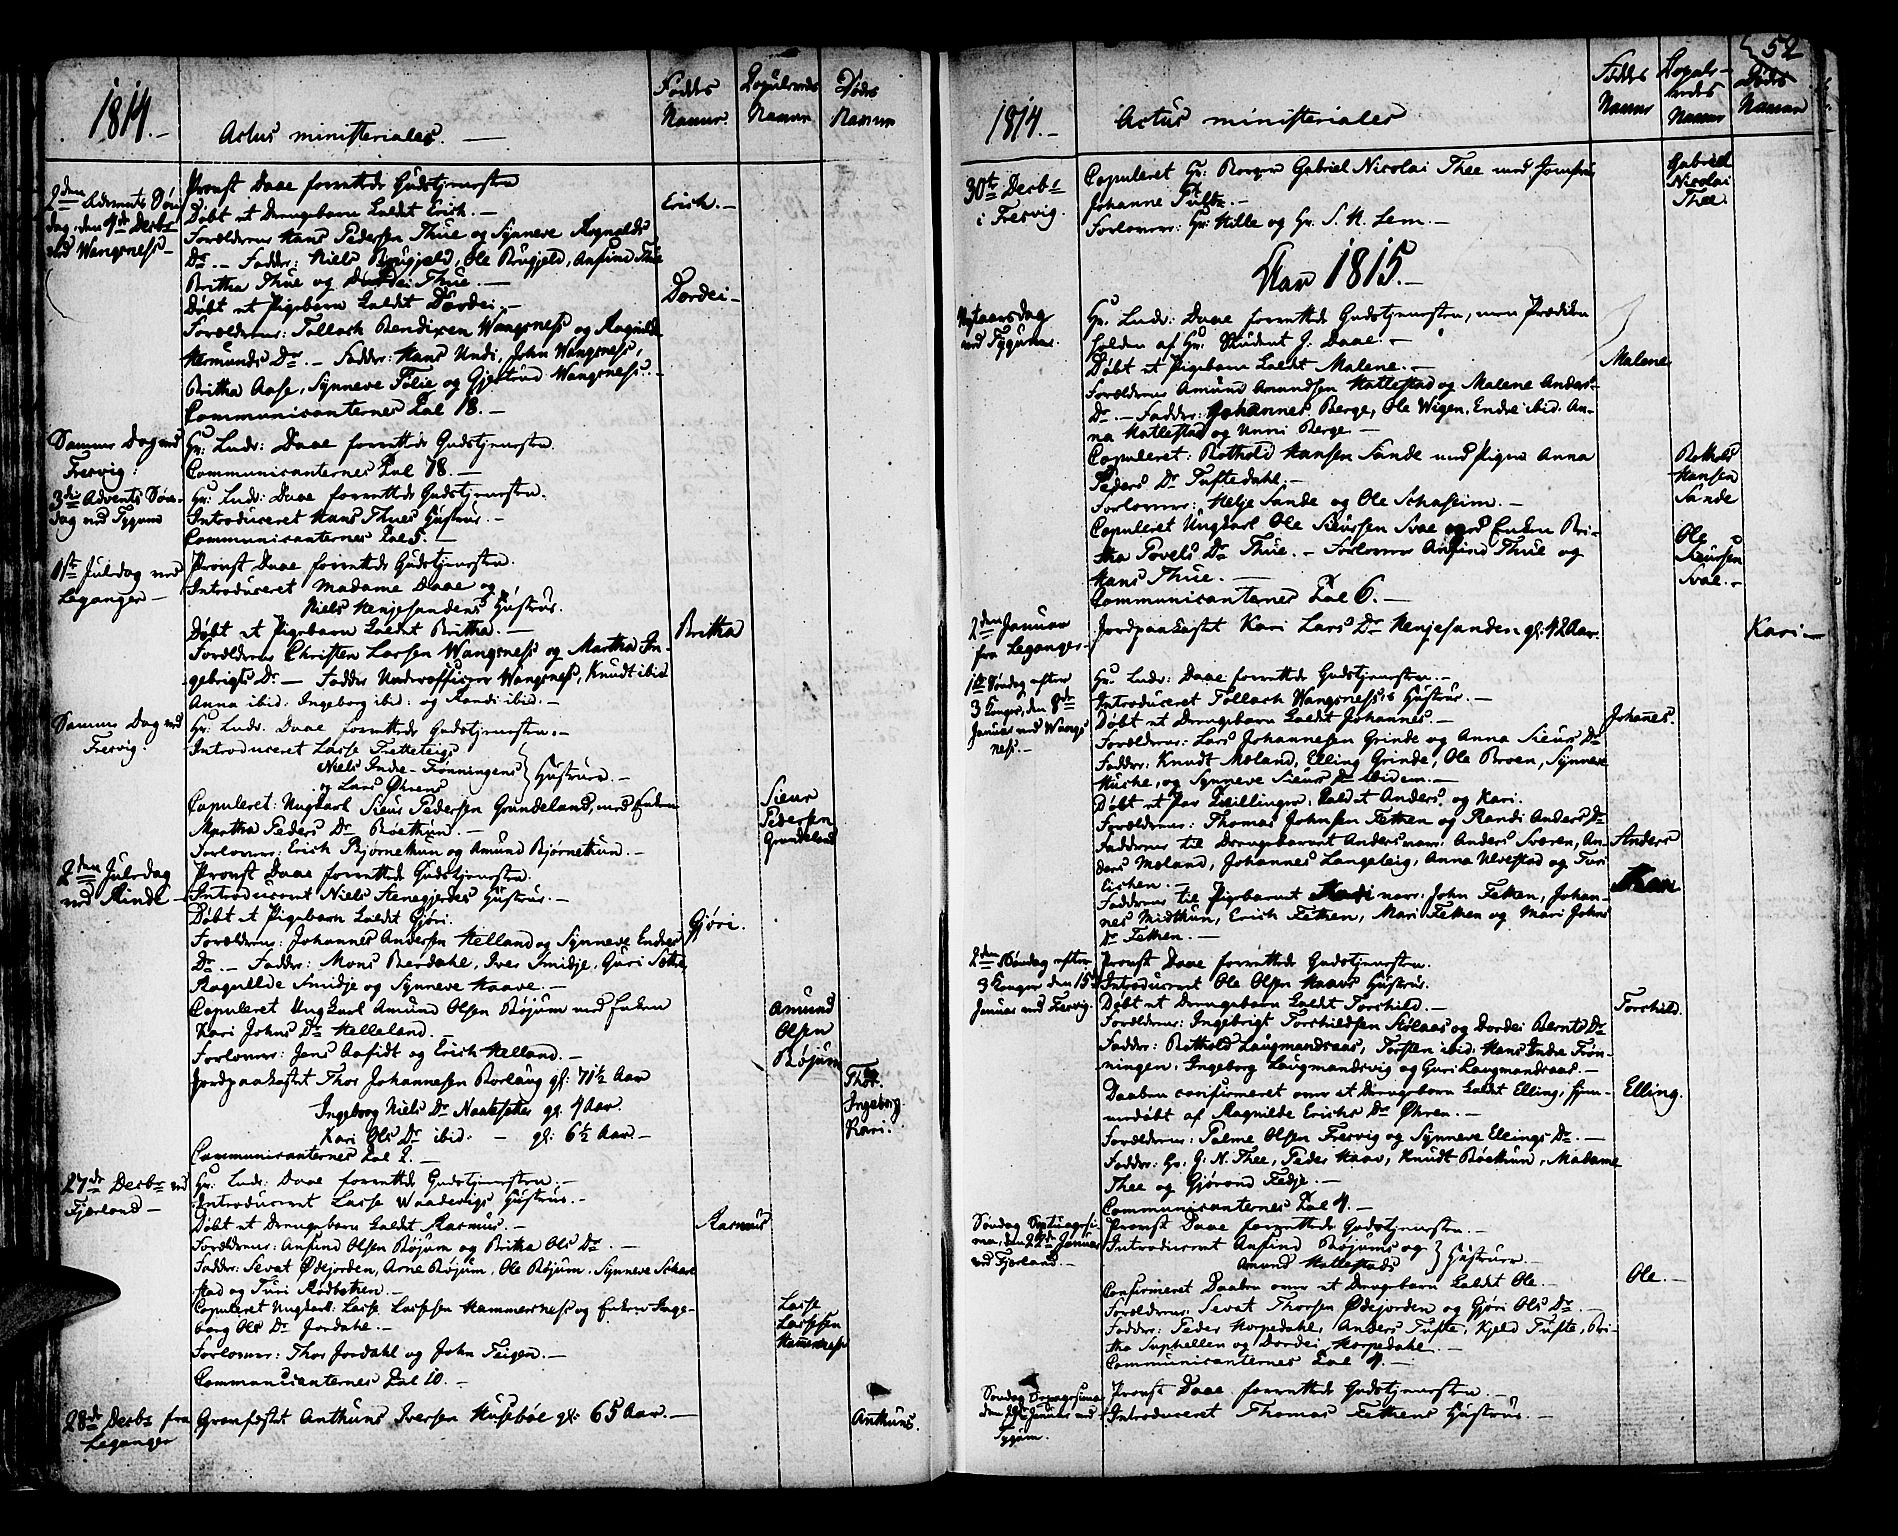 1814.-
Actus ministeriales. —
Føddes Navne.
Copuleredes Navne
Dødes Navne
2den Advents Søn-
dag, den 4de Decbr
ved Wangsness -
Provst Daae forrettede Gudstjenesten
Døbt et Drengebarn kaldet Erich. -
Erich. -
Forældrene Hans Pedersen Thue og Synneve Rognalds
Dr. - Fadder: Niels Brugjeld, Ole Brugjeld, Ansund Thue
Britha Thue og Dordei Thue. -
Døbt et Pigebarn kaldet Dordei. -
Dordei -
Forældrene: Tollach Bendixen Wangsness og Ragnilde
Hermunds Dr. - Fadder: Hans Undi, John Wangsness,
Britha Aase, Synneve Følie og Gjertrud Wangsness. -
Communicanternes Tal 18. -
Samme Dag ved
Fresvig:
Hr. Ludv: Daae forrettede Gudstjenesten.
Communicanternes Tal 78. -
3die Advents Søn-
dag ved Tygum
Hr: Ludv: Daae forrettede Gudstjenesten.
Introduceret Hans Thues Hustrue. -
Communicanternes Tal 5. -
1ste Juledag ved
Leganger -
Provst Daae forrettede Gudstjenesten.
Introduceret Madame Daae og
Niels Henjesandens Hustrue.
Døbt et Pigebarn kaldet Britha. -
Britha
Forældrene Christen Larsen Wangsness og Martha In-
gebrigts Dr - Fadder Underofficeer Wangsness, Knudt ibid
Anna ibid: Ingeborg ibid: og Randi ibid. -
Samme Dag ved
Fresvig:
Hr: Ludv: Daae forrettede Gudstjenesten. -
Introduceret Lasse Tretteteigs
Niels Indre-Frønningens } Hustruer. -
og Lars Øhrens
Copuleret: Ungkarl Sieur Pedersen Grundeland, med Enken
Sieur
Pedersen
Grundeland
Martha Peders Dr Bøethun. -
Forlovere: Erich Bjørnethun og Amund Bjørnethun. -
2den Juledag
ved Rinde -
Provst Daae forrettede Gudstjenesten.
Introduceret Niels Stenegjerdes Hustrue. -
Døbt et Pigebarn kaldet Gjøri.
Gjøri.
Forældrene: Johannes Andersen Helland og Synneve Endres
Dr. - Fadder: Mons Berdahl, Iver Smidje, Guri Sætte
Ragnilde Smidje og Synneve Haave. -
Copuleret Ungkarl Amund Olsen Bøjum med Enken
Amund
Olsen
Bøjum
Kari Johns Dr Helleland.
Forlovere: Jens Aafidt og Erich Helland. -
Jordpaakastet Thor Johannesen Borlaug gl: 71½ Aar
Thor.
Ingeborg Niels Dr Naatesette gl: 4 Aar.
Ingeborg.
Kari Ols Dr ibid. - gl: 6½ Aar -
Kari.
Communicanternes Tal 2. -
27de Decbr ved
Fjerland -
Hr. Ludv: Daae forrettede Gudstjenesten. -
Introduceret Lasse Waadesligs Hustrue. -
Døbt et Drengebarn kaldet Rasmus. -
Rasmus
Forældrene: Ansund Olsen Bøjum og Britha Ols Dr. -
Fadder: Sevat Ødejorden, Arne Bøjum, Ole Bøjum, Synneve Skare
stad og Turi Rødbotten. -
Copuleret Ungkarl: Lasse Larssen Hammersness og Enken Inge-
Lasse
Larssen
Hammersness
borg Ols Dr Jordahl. -
Forlovere: Thor Jordahl og John Teigen. -
Communicanternes Tal 10. -
28de Decbr fra
Leganger
Gravfæstet Anthuns Iversen Husebøe gl: 65 Aar. -
Anthuns.
52
1814. -
Actus ministeriales
Føddes Navne
Copule-
redes
Navne
Dødes
Navne
30te Decbr
i Fresvig.
Copuleret Hr: Borger Gabriel Nicolai Thee med Jomfrue
Gabriel
Nicolai
Thee.
Johanne -
Forlovere: Hr: Hille og Hr. S. N. Lem. -
Aar 1815. -
Nytaarsdag
ved Tygum.
Hr: Ludv: Daae forrettede Gudstjenesten, men Prædiken
holden af Hr: Student J. Daae. -
Døbt et Pigebarn kaldet Malene. -
Malene
Forældrene Amund Amundsen Hatlestad og Malene Anders
Dr. - Fadder: Johannes Berge, Ole Wigen, Endre ibid. An-
na Hatlestad og Unni Berge -
Copuleret: Bothold Hansen Sande med Pigen Anna
Bothold
Hansen
Sande
Peders Dr Tuftedahl. -
Forlovere: Helje Sande og Ole Schaseim. -
Copuleret Ungkarl Ole Sieursen Svae med Enken Bri-
Ole
Sieursen
Svae. -
tha Povels Dr Thue. - Forlovere Ansund Thue og
Hans Thue. -
Communicanternes Tal 6. -
2den Januar
fra Leganger -
Jordpaakastet Kari Lars Dr Henjesanden gl: 42 Aar.
Kari -
1ste Søndag efter
3 Konger, den 8de
Januar ved Wangs
ness. -
Hr: Ludv: Daae forrettede Gudstjenesten. -
Introduceret Tollach Wangsness's Hustrue. -
Døbt et Drengebarn kaldet Johannes. -
Johannes.
Forældrene: Lars Johannesen Grinde og Anna Sieurs Dr
Fadder: Knudt Moland, Elling Grinde, Ole Broen, Synneve
Husche, og Synneve Sieurs Dr ibidem. -
Døbt et Par Tvillinger, kaldet Anders, og Kari.
Forældrene: Thomas Johnsen Fetken og Randi Anders Dr
Fadderne til Drengebarnet Anders nave: Anders Sværen, An-
Anders
ders Moland, Johannes Langeteig, Anna Ulvestad og Turi
Eschen.
Fadderne til Pigebarnet Kari nave: John Fetken, Johan-
Kari
nes Midthun, Erich Fetken, Mari Fetken og Mari Johns
Dr Fetken. -
2den Søndag efter
3 Konger den 15de
Januar ved Fresvig.
Provst Daae forrettede Gudstjenesten.
Introduceret Ole Olsen Haaves Hustrue.
Døbt et Drengebarn kaldet Torchild. -
Torchild.
Forældrene: Ingebrigt Torchildsen Stølaas og Dordei Bernts Dr
Fadder: Bothold Laugmandsaas, Torsten ibid. Hans Indre Frøn-
ningen, Ingeborg Laugmandsvig og Guri Laugmandsaas. -
Daaben confirmeret over et Drengebarn kaldet Elling, hjem-
Elling.
medøbt af Ragnilde Erichs Dr Øhren. -
Forældrene: Palme Olsen Fresvig og Synneve Ellings Dr. -
Fadder: Hr. G. N. Thee, Peder Haave, Knudt Bøethun, Madame
Thee og Gjørond Fedje. -
Communicanternes Tal 4. -
Søndag Septuagesi-
ma, den 22de Januar
ved Fjerland. -
Provst Daae forrettede Gudstjenesten. -
Introduceret Ansund Bøjums og
Amund Hatlestads } Hustruer. -
Confirmeret Daaben over et Drengebarn kaldet Ole. -
Ole.
Forældrene: Sevat Thorsen Ødejorden og Gjøri Ols Dr. -
Fadder: Peder Horpedahl, Anders Tufte, Kjeld Tufte, Bri-
tha Suphellen og Dordei Horpedahl. -
Communicanternes Tal 4. -
Søndag Sexagesima
den 29de Januar ved
Tygum.
Provst Daae forrettede Gudstjenesten. -
Introduceret Thomas Fetkens Hustrue. -